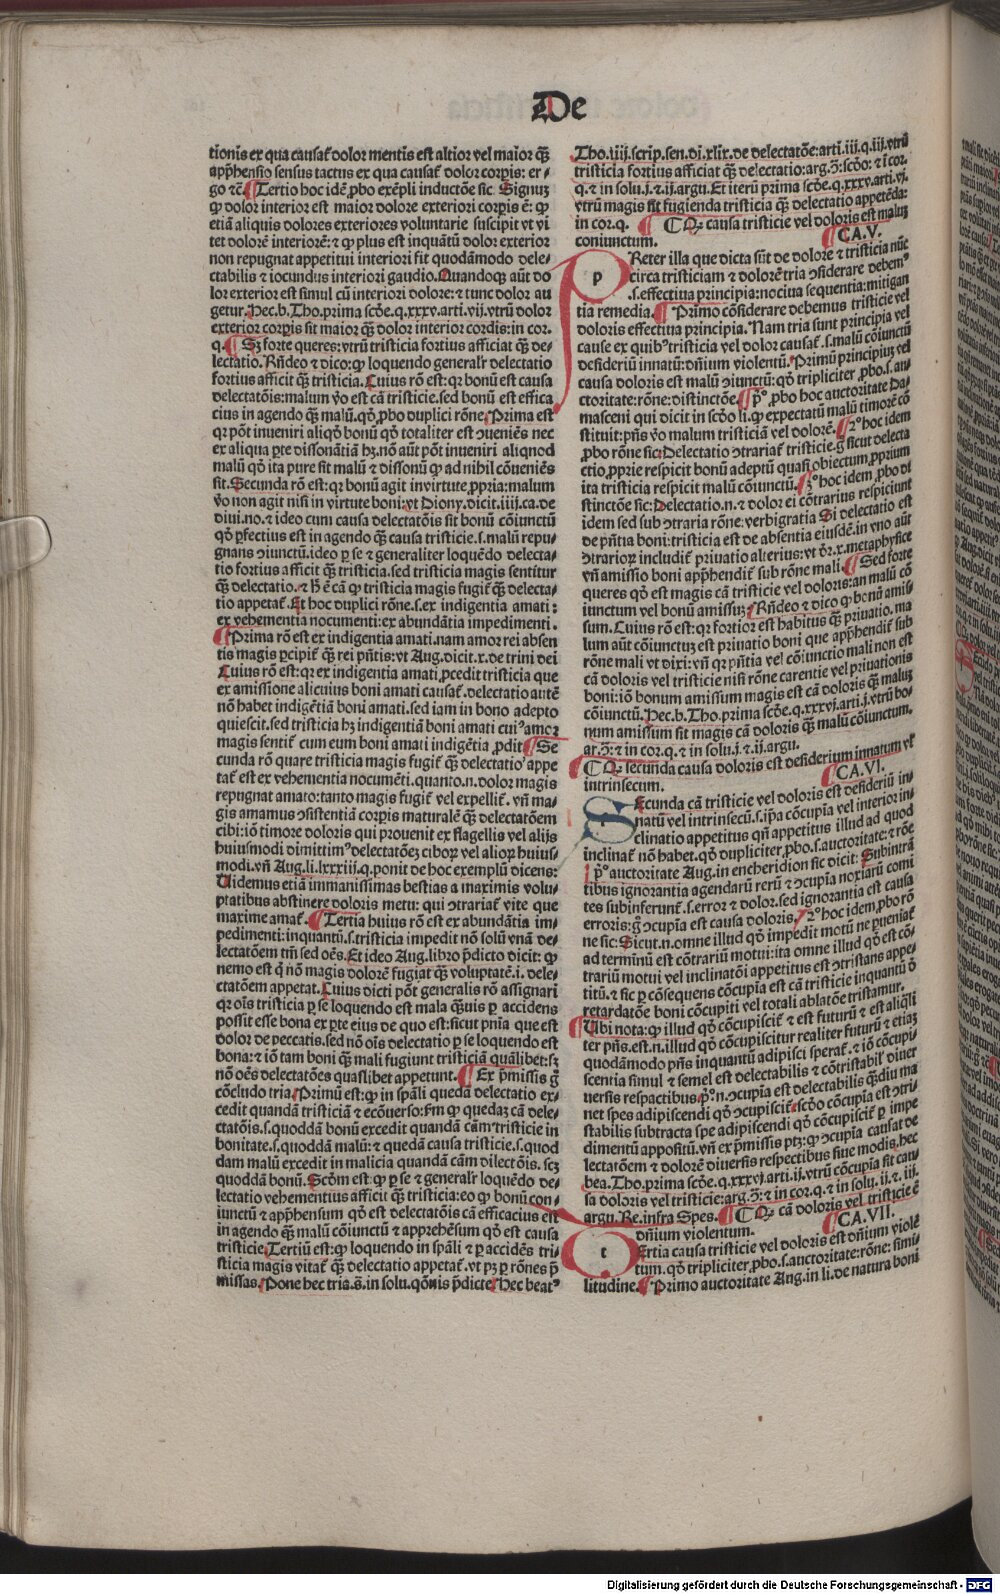 De
tionis ex qua causat̃ dolor mentis est altior vel maior q̃ȝ
app̃hensio sensus tactus ex qua causat̃ dolor corp̄is: er-
go ⁊c̄. Tertio hoc idē ꝓbo exēpli inductōe sic. Signuȝ
ꝙ dolor interior est maior dolore exteriori corp̄is ē: ꝙ
etiā aliquis dolores exteriores voluntarie suscipit vt vi
tet dolorē interiorē: ⁊ ꝙ plus est inquātū dolor exterior
non repugnat appetitui interiori fit quodāmodo dele-
ctabilis ⁊ iocundus interiori gaudio. Quandoqȝ aūt do
lor exterior est simul cū interiori dolore: ⁊ tunc dolor au
getur. Hec. b. Tho. prima scd̄e. q. xxxv. arti. vij. vtrū dolor
exterior corp̄is sit maior q̃ȝ dolor interior cordis: in cor.
q. Sȝ forte queres: vtrū tristicia fortius afficiat q̃ȝ de-
lectatio. Rn̄deo ⁊ dico: ꝙ loquendo generalr̄ delectatio
fortius afficit q̃ȝ tristicia. Cuius rō est: qr bonū est causa
delectatōis: malum v̄o est cā tristicie. sed bonū est effica
cius in agendo q̃ȝ malū. qd̄ ꝓbo duplici rōne. Prima est
qr pōt inueniri aliqd̄ bonū qd̄ totaliter est ↄueniēs nec
ex aliqua ꝑte dissonātiā hȝ. nō aūt pōt inueniri aliqnod
malū qd̄ ita pure sit malū ⁊ dissonū ꝙ ad nihil cōueniēs
sit. Secunda rō est: qr bonū agit in virtute ꝓpria: malum
v̄o non agit nisi in virtute boni: vt Diony. dicit. iiij. ca. de
diui. no. ⁊ ideo cum causa delectatōis sit bonū cōiunctū
qd̄ ꝑfectius est in agendo q̃ȝ causa tristicie. s. malū repu-
gnans ↄiunctū. ideo ꝑ se ⁊ generaliter loquēdo delecta-
tio fortius afficit q̃ȝ tristicia. sed tristicia magis sentitur
q̃ȝ delectatio. ⁊ h̄ ē cā ꝙ tristicia magis fugit̃ q̃ȝ delecta-
tio appetat̃. Et hoc duplici rōne. s. ex indigentia amati:
ex vehementia nocumenti: ex abundātia impedimenti.
Prima rō est ex indigentia amati. nam amor rei absen
tis magis ꝑcipit̃ q̃ȝ rei p̃ntis: vt Aug. dicit. x. de trini dei
Cuius rō est: qr ex indigentia amati ꝓcedit tristicia que
ex amissione alicuius boni amati causat̃. delectatio autē
nō habet indigētiā boni amati. sed iam in bono adepto
quiescit. sed tristicia hȝ indigentiā boni amati cui⁹ amor
magis sentit̃ cum eum boni amati indigētia ꝓdit. Se
cunda rō quare tristicia magis fugit̃ q̃ȝ delectatio appe
tat̃ est ex vehementia nocumēti. quanto. n. dolor magis
repugnat amato: tanto magis fugit̃ vel expellit̃. vn̄ ma-
gis amamus ↄsistentiā corp̄is maturalē q̃ȝ delectatōem
cibi: iō timore doloris qui prouenit ex flagellis vel alijs
huiusmodi dimittim⁹ delectatōeȝ ciboꝝ vel alioꝝ huius-
modi. vn̄ Aug. li. lxxxiij. q. ponit de hoc exemplū dicens:
Uidemus etiā immanissimas bestias a maximis volu-
ptatibus abstinere doloris metu: qui ↄtrariat̃ vite que
maxime amat̃. Tertia huius rō est ex abundātia im-
pedimenti: inquantū. s. tristicia impedit nō solū vnā de-
lectatōem tm̄ sed oēs. Et ideo Aug. libro p̃dicto dicit: ꝙ
nemo est q̄ nō magis dolorē fugiat q̃ȝ voluptatē. i. dele-
ctatōem appetat. Cuius dicti pōt generalis rō assignari
qr oīs tristicia ꝑ se loquendo est mala q̃ȝuis ꝑ accidens
possit esse bona ex ꝑte eius de quo est: sicut pn̄ia que est
dolor de peccatis. sed nō oīs delectatio ꝑ se loquendo est
bona: ⁊ iō tam boni q̃ȝ mali fugiunt tristiciā quālibet: sȝ
nō oēs delectatōes quaslibet appetunt. Ex p̃missis g̃
cōcludo tria. Primū est: ꝙ in sp̄ali quedā delectatio ex-
cedit quandā tristiciā ⁊ ecōuerso: Fm ꝙ quedaȝ cā dele-
ctatōis. s. quoddā bonū excedit quandā cām tristicie in
bonitate. s. quoddā malū: ⁊ quedā causa tristicie. s. quod
dam malū excedit in malicia quandā cām dilectōis. scȝ
quoddā bonū. Scd̄m est: ꝙ ꝑ se ⁊ generalr̄ loquēdo de-
lectatio vehementius afficit q̃ȝ tristicia: eo ꝙ bonū con
iunctū ⁊ app̃hensum qd̄ est delectatōis cā efficacius est
in agendo q̃ȝ malū cōiunctū ⁊ apprehēsum qd̄ est causa
tristicie. Tertiū est: ꝙ loquendo in sp̄ali ⁊ ꝑ accidēs tri-
sticia magis vitat̃ q̃ȝ delectatio appetat̃. vt pȝ ꝑ rōnes p̃
missas. Pone hec tria. s̄. in solu. qōnis p̃dicte. Hec beat⁹
Tho. iiij. scrip. sen. di. xlix. de delectatōe: arti. iij. q. iij. vtrū
tristicia fortius afficiat q̃ȝ delectatio: arg. ↄ̄: scd̄o: ⁊ ī cor.
q. ⁊ in solu. j. ⁊ .ij. argu. Et iterū prima scd̄e. q. xxxv. arti. vj.
vtrū magis sit fugienda tristicia q̃ȝ delectatio appetēda:
in cor. q. Qꝙ causa tristicie vel doloris est maluȝ
coniunctum. CA. V.
PReter illa que dicta sūt de dolore ⁊ tristicia nūc
circa tristiciam ⁊ dolorē tria ↄsiderare debem⁹
.s. effectiua principia: nociua sequentia: mitigan
tia remedia. Primo cōsiderare debemus tristicie vel
doloris effectiua principia. Nam tria sunt principia vel
cause ex quib⁹ tristicia vel dolor causat̃. s. malū cōiunctū
desideriū innatū: dn̄ium violentū. Primū principiuȝ vel
causa doloris est malū ↄiunctū: qd̄ tripliciter ꝓbo. s. au-
ctoritate: rōne: distinctōe. p⁰. ꝓbo hoc auctoritate Da-
masceni qui dicit in scd̄o li. ꝙ expectatū malū timorē cō
stituit: p̄ns v̄o malum tristiciā vel dolorē. 2⁰ hoc idem
ꝓbo rōne sic: Delectatio ↄtrariat̃ tristicie. g̃ sicut delecta
ctio ꝓprie respicit bonū adeptū quasi obiectum ꝓprium
ita tristicia respicit malū cōiunctū. 3⁰ hoc idem ꝓbo di
stinctōe sic: Delectatio. n. ⁊ dolor ei cōtrarius respiciunt
idem sed sub ↄtraria rōne: verbigratia Si delectatio est
de p̃ntia boni: tristicia est de absentia eiusdē. in vno aūt
ↄtrarioꝝ includit̃ priuatio alterius: vt d̄r. x. metaphysice
vn̄ amissio boni app̃hendit̃ sub rōne mali. Sed forte
queres qd̄ est magis cā tristicie vel doloris: an malū cō
iunctum vel bonū amissuȝ. Rn̄deo ⁊ dico ꝙ bonū amis
sum. Cuius rō est: qr fortior est habitus q̃ȝ priuatio. ma
lum aūt cōiunctuȝ est priuatio boni que app̃hendit̃ sub
rōne mali vt dixi: vn̄ qr p̃ntia vel cōiunctio mali non est
cā doloris vel tristicie nisi rōne carentie vel priuationis
boni: iō bonum amissum magis est cā doloris q̃ȝ maluȝ
cōiunctū. Hec. b. Tho. prima scd̄e. q. xxxvj. arti. j. vtrū bo-
num amissum sit magis cā doloris q̃ȝ malū cōiunctum.
ar. ↄ̄: ⁊ in cor. q. ⁊ in solu. j. ⁊ .ij. argu.
Qꝙ secunda causa doloris est desiderium innatum vl̄
intrinsecum. CA. VI.
SEcunda cā tristicie vel doloris est desideriū in-
natū vel intrinsecū. s. ip̄a cōcupīa vel interior in-
clinatio appetitus qn̄ appetitus illud ad quod
inclinat̃ nō habet. qd̄ dupliciter ꝓbo. s. auctoritate: ⁊ rōe
p⁰ auctoritate Aug. in encheridion sic dicit: Subintrā
tibus ignorantia agendarū rerū ⁊ ↄcupīa noxiarū comi
tes subinferunt̃. s. error ⁊ dolor. sed ignorantia est causa
erroris: g̃ ↄcupīa est causa doloris. 2⁰ hoc idem ꝓbo rō
ne sic: Sicut. n. omne illud qd̄ impedit motū ne ꝑueniat
ad terminū est cōtrariū motui: ita omne illud qd̄ est cō-
trariū motui vel inclinatōi appetitus est ↄtristans appe-
titū. ⁊ sic ꝑ cōsequens cōcupīa est cā tristicie inquantū d̄
retardatōe boni cōcupiti vel totali ablatōe tristamur.
Ubi nota: ꝙ illud qd̄ cōcupiscit̃ ⁊ est futurū ⁊ est aliq̃li
ter p̄ns. est. n. illud qd̄ cōcupiscitur realiter futurū ⁊ etiaȝ
quodāmodo p̄ns inquantū adipisci sperat̃. ⁊ iō cōcupi-
scentia simul ⁊ semel est delectabilis ⁊ cōtristabil̄ diuer
uersis respectibus. p⁰. n. ↄcupīa est delectabilis q̃ȝdiu ma
net spes adipiscendi qd̄ ↄcupiscit̃. scd̄o cōcupīa est ↄtri-
stabilis subtracta spe adipiscendi qd̄ cōcupiscit̃ ꝑ impe
dimentū appositū. vn̄ ex p̃missis ptȝ: ꝙ ↄcupīa causat de
lectatōem ⁊ dolorē diuersis respectibus siue modis. hec
bea. Tho. prima scd̄e. q. xxxvj. arti. ij. vtrū cōcupīa sit cau
sa doloris vel tristicie: arg. ↄ̄: ⁊ in cor. q. ⁊ in solu. ij. ⁊ .iij.
argu. Re. infra Spes. Qꝙ cā doloris vel tristicie ē
dn̄ium violentum. CA. VII.
TErtia causa tristicie vel doloris est dn̄ium violē
tum. qd̄ tripliciter ꝓbo. s. auctoritate: rōne: simi-
litudine. Primo auctoritate Aug. in li. de natura boni
Digitalisierung gefördert durch die Deutsche Forschungsgemeinschaft - DFG